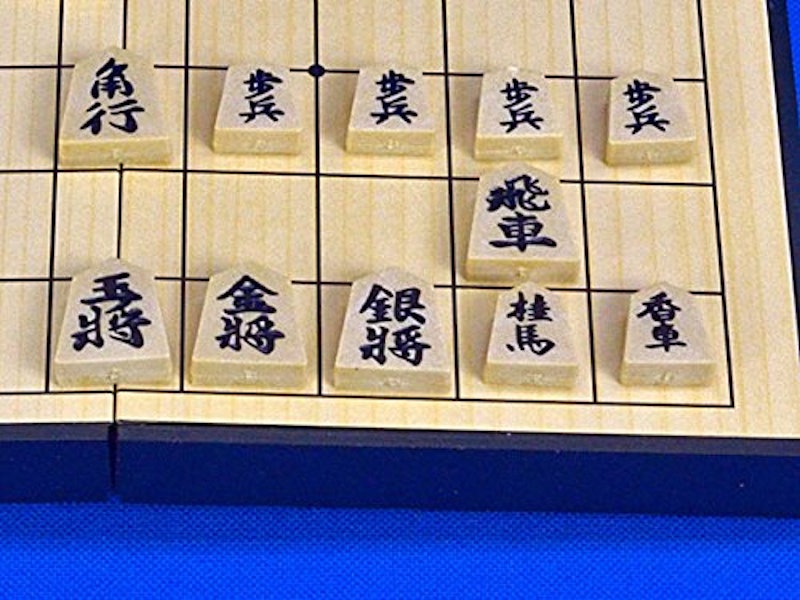 角行
歩兵
歩兵
歩兵
歩兵
飛車
玉將
金將
銀將
桂馬
香車